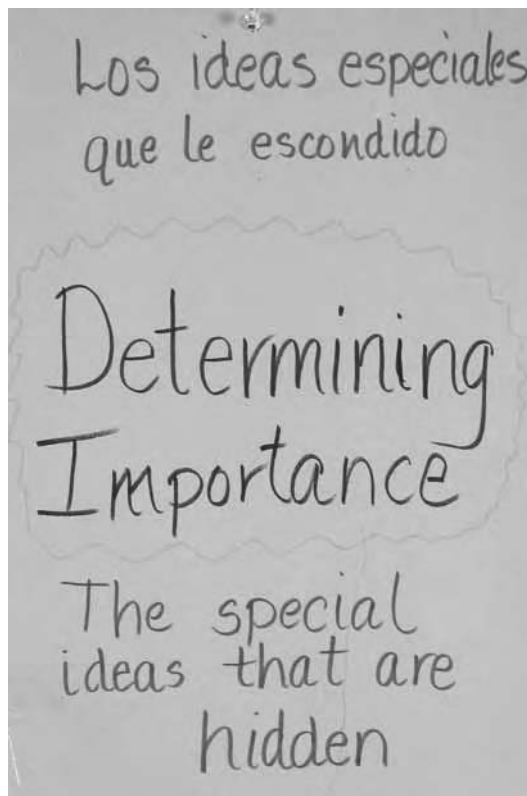 Los ideas especiales
que le escondido
Determining
Importance
The special
ideas that are
hidden